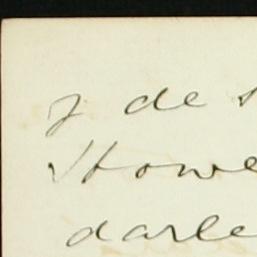 y de s
Howe
darle